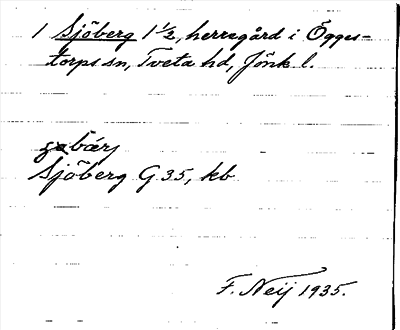 1 Sjöberg 1 1/2, herregård i Ögges-
torps sn, Tveta hd, Jönk l.
Sjöberg G 35, kb
F. Neij 1935.